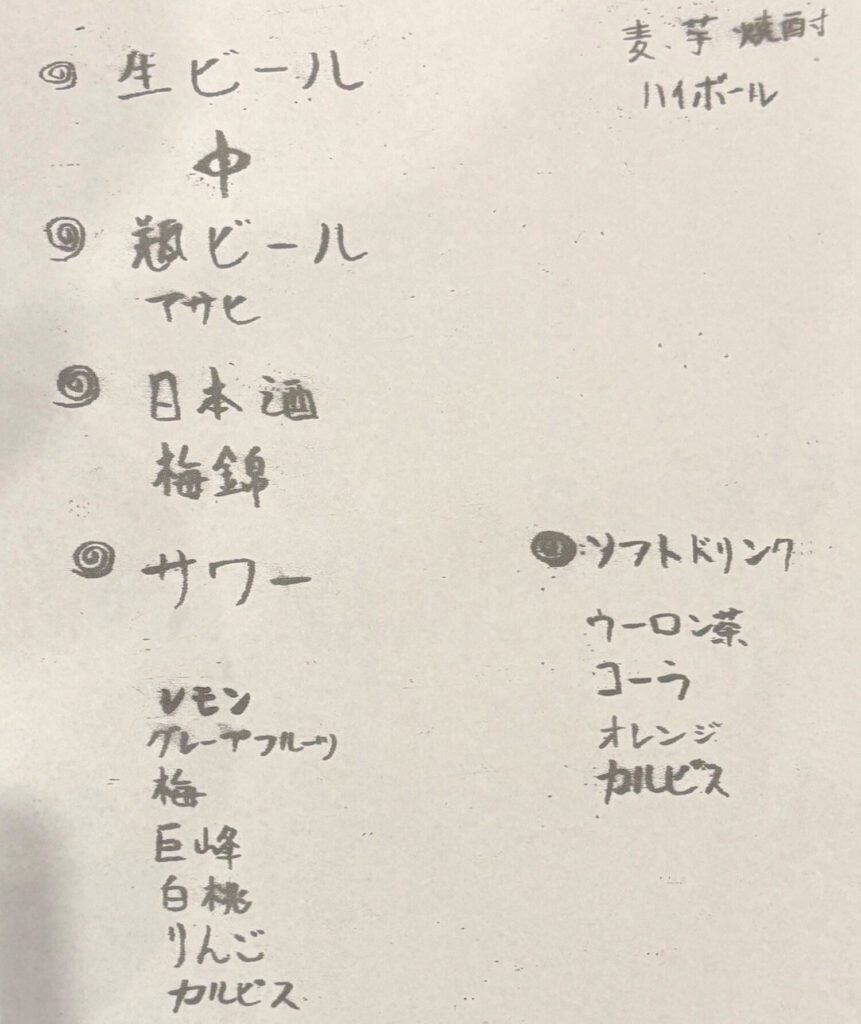 生ビール
中
瓶ビール
アサヒ
日本酒
梅錦
サワー
レモン
グレープフルーツ
梅
巨峰
白桃
りんご
カルピス
麦、芋 焼酎
ハイボール
ソフトドリンク
ウーロン茶
コーラ
オレンジ
カルピス